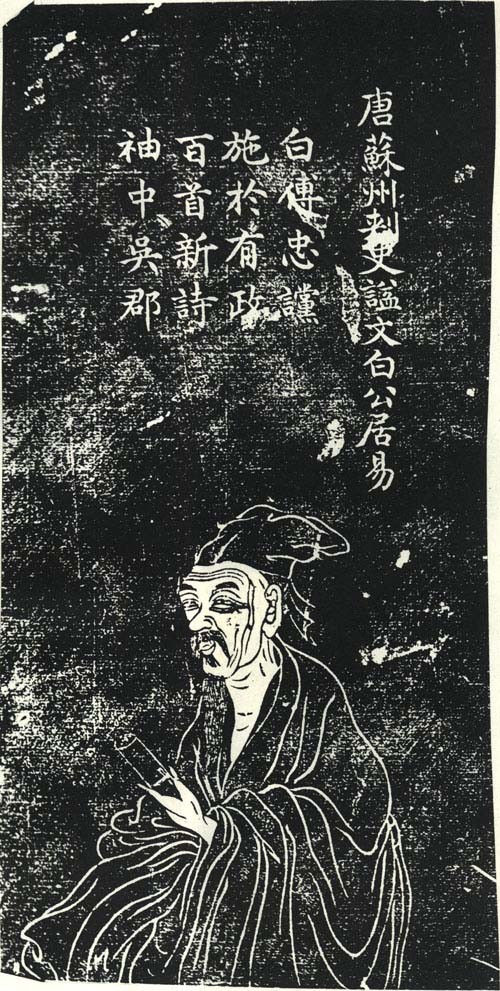 唐蘇州刺史諡文白公居易
白傅忠讜
施於有政
百首新詩
袖中吳郡